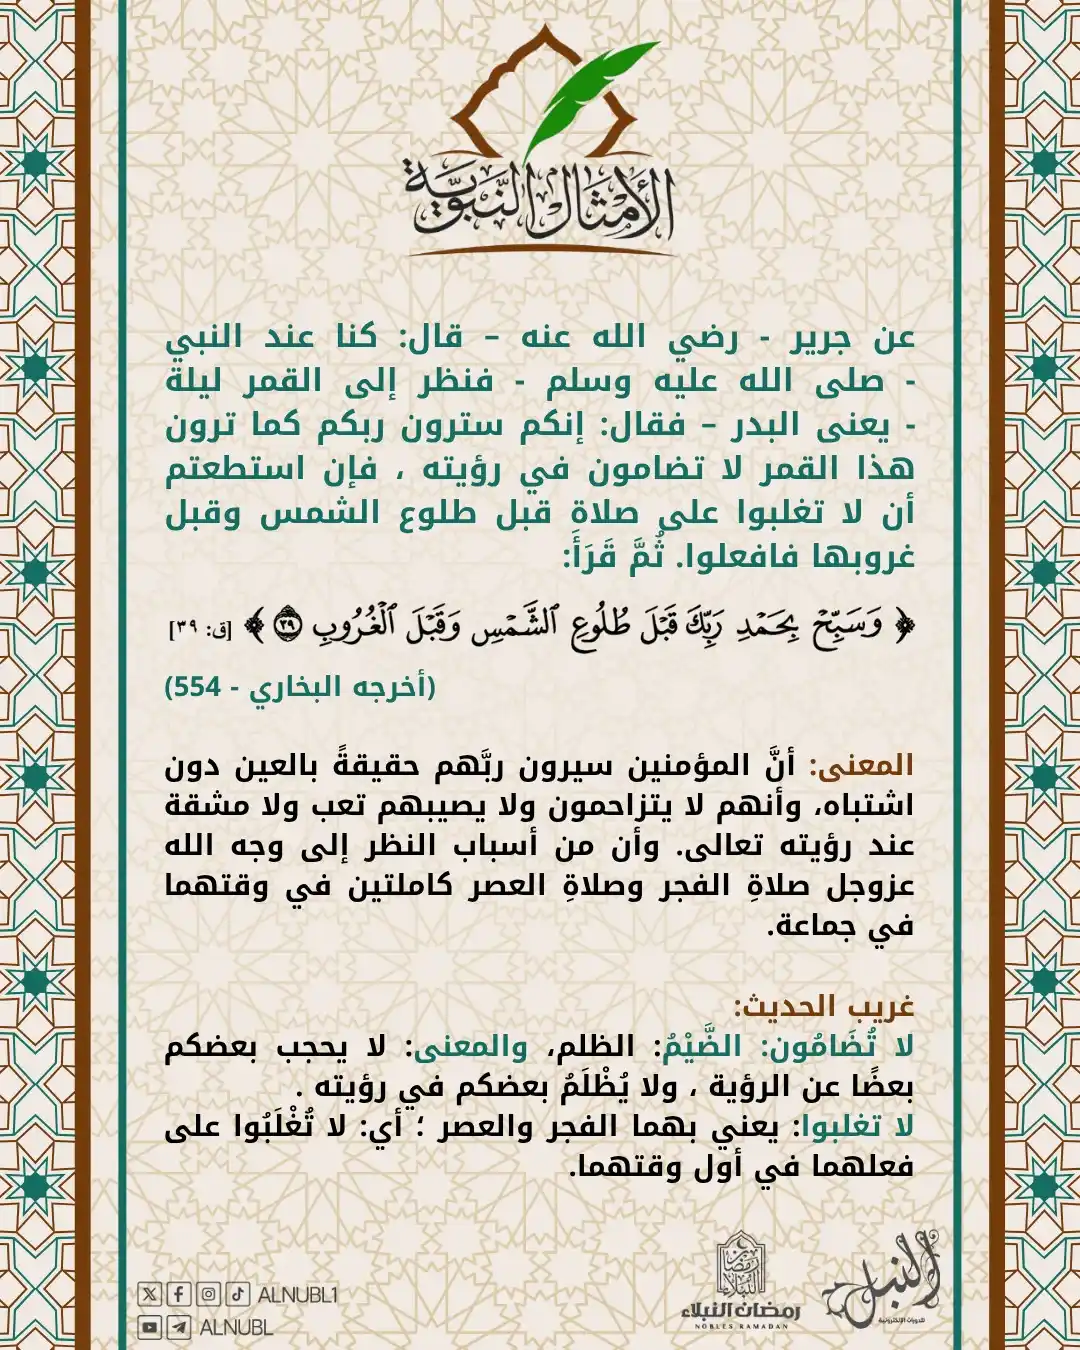 الأمثال النبوية
عن جرير - رضي الله عنه – قال: كنا عند النبي
- صلى الله عليه وسلم - فنظر إلى القمر ليلة
- يعنى البدر – فقال: إنكم سترون ربكم كما ترون
هذا القمر لا تضامون في رؤيته ، فإن استطعتم
أن لا تغلبوا على صلاة قبل طلوع الشمس وقبل
غروبها فافعلوا. ثُمَّ قَرَأَ:
﴿ وَسَبِّحْ بِحَمْدِ رَبِّكَ قَبْلَ طُلُوعِ ٱلشَّمْسِ وَقَبْلَ ٱلْغُرُوبِ ٣٩ ﴾ [ق: ٣٩]
(أخرجه البخاري - 554)
المعنى: أنَّ المؤمنين سيرون ربَّهم حقيقةً بالعين دون
اشتباه، وأنهم لا يتزاحمون ولا يصيبهم تعب ولا مشقة
عند رؤيته تعالى. وأن من أسباب النظر إلى وجه الله
عزوجل صلاةِ الفجر وصلاةِ العصر كاملتين في وقتهما
في جماعة.
غريب الحديث:
لا تُضَامُون: الضَّيْمُ: الظلم، والمعنى: لا يحجب بعضكم
بعضًا عن الرؤية ، ولا يُظْلَمُ بعضكم في رؤيته .
لا تغلبوا: يعني بهما الفجر والعصر ؛ أي: لا تُغْلَبُوا على
فعلهما في أول وقتهما.
النبلاء
للدورات الإلكترونية
رمضان النبلاء
رمضان النبلاء
NOBLES RAMADAN
ALNUBL1
ALNUBL